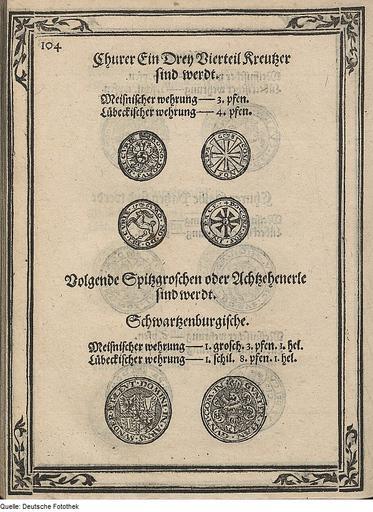 104
Churer Ein Drey Vierteil Kreutzer
sind werdt.
Meisnischer wehrung — 3. pfen.
Lübeckischer wehrung — 4. pfen.
Volgende Spitzgroschen oder Achtzehenerle
sind werdt.
Schwartzenburgische.
Meisnischer wehrung — 1. grosch. 3. pfen. 1. hel.
Lübeckischer wehrung — 1. schil. 8. pfen. 1. hel.
Quelle: Deutsche Fotothek